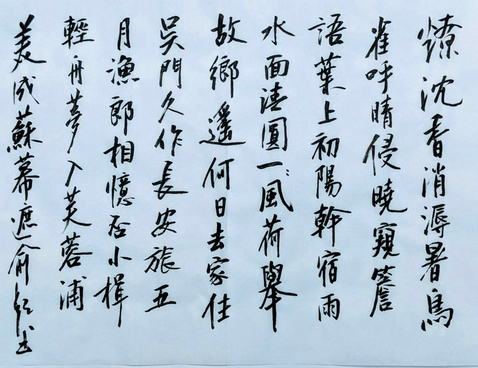 燎沈香消溽暑鳥
雀呼晴侵曉窺簷
語葉上初陽幹宿雨
水面清圓一〻風荷舉
故鄉遙何日去家住
吳門久作長安旅五
月漁郎相憶否小楫
輕舟夢入芙蓉浦
美成蘇幕遮俞书